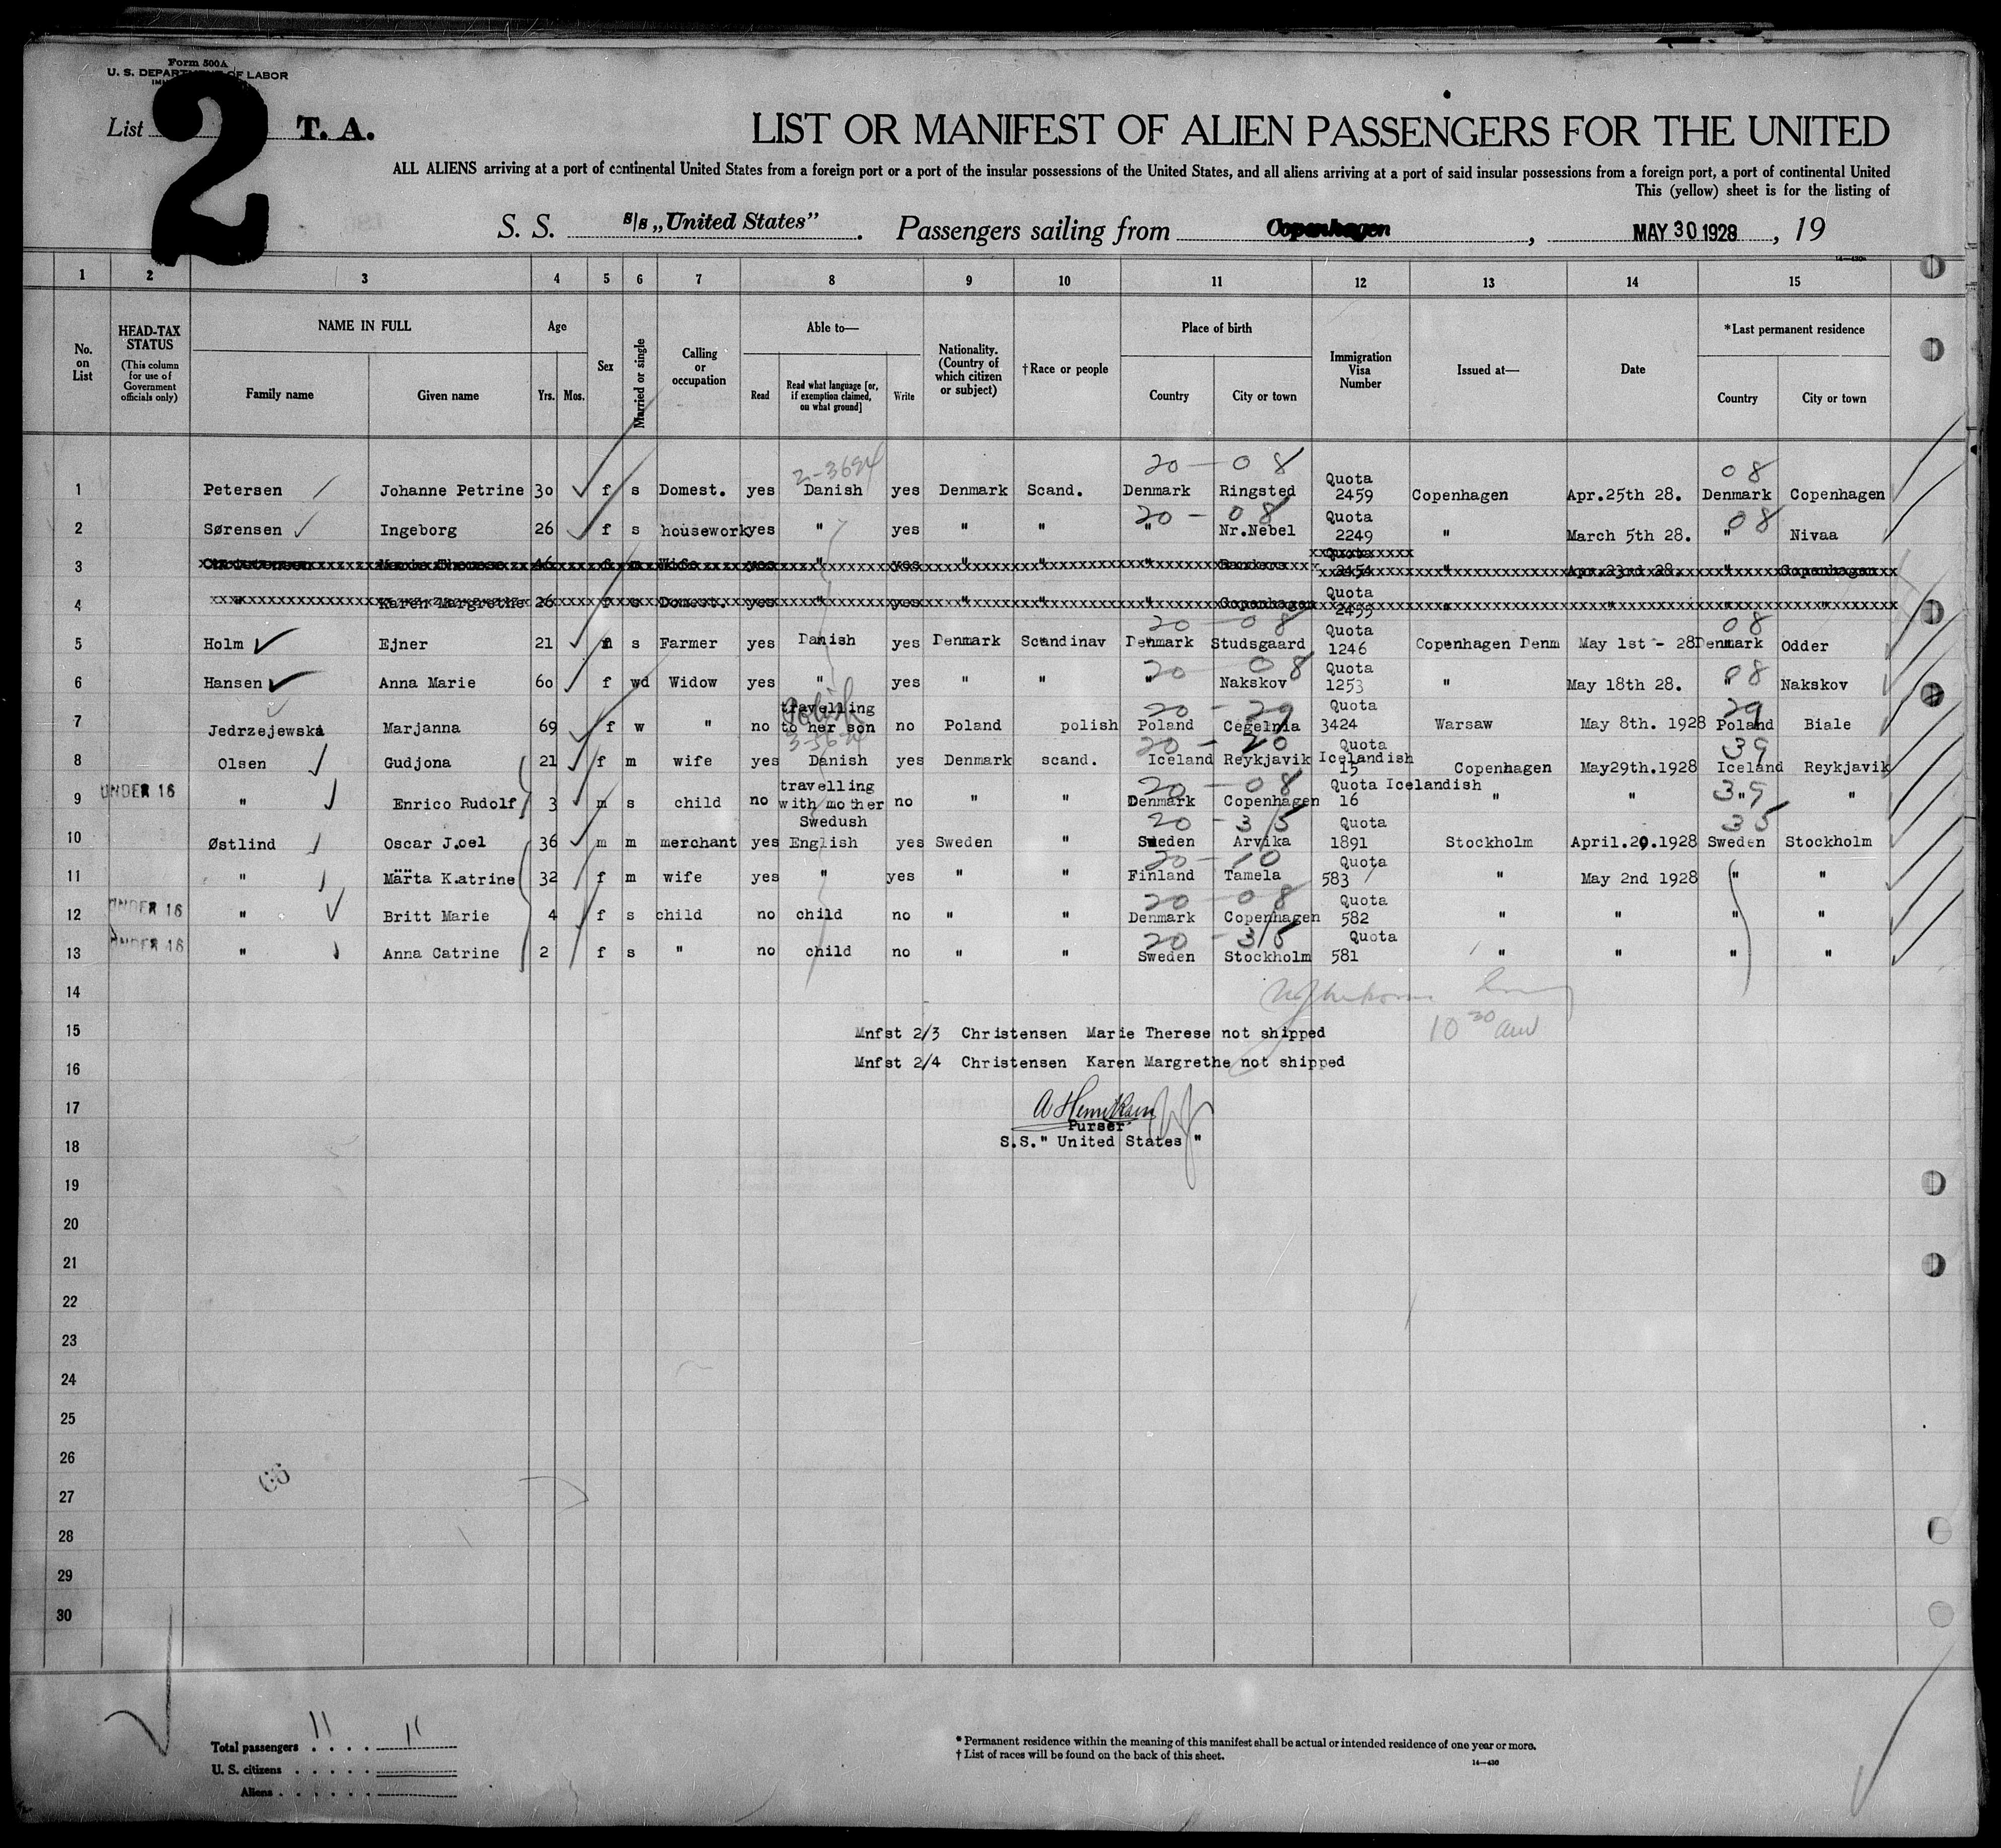 Form 500A
U. S. DEPARTMENT OF LABOR
List 2 T. A.
LIST OR MANIFEST OF ALIEN PASSENGERS FOR THE UNITED
ALL ALIENS arriving at a port of continental United States from a foreign port or a port of the insular possessions of the United States, and all aliens arriving at a port of said insular possessions from a foreign port, a port of continental United
This (yellow) sheet is for the listing of
S. S. s/s „United States" . Passengers sailing from Copenhagen , MAY 30 1928 , 19
14—430
1 2 3 4 5 6 7 8 9 10 11 12 13 14 15
No. on List HEAD-TAX STATUS (This column for use of Government officials only) NAME IN FULL Family name Given name Age Yrs. Mos. Sex Married or single Calling or occupation Able to— Read Read what language [or, if exemption claimed, on what ground] Write Nationality. (Country of which citizen or subject) †Race or people Place of birth Country City or town Immigration Visa Number Issued at— Date *Last permanent residence Country City or town
2-3694 20-08 08
1 Petersen Johanne Petrine 30 f s Domest. yes Danish yes Denmark Scand. Denmark Ringsted Quota 2459 Copenhagen Apr.25th 28. Denmark Copenhagen
20-08 08
2 Sørensen Ingeborg 26 f s housework yes " yes " " " Nr.Nebel Quota 2249 " March 5th 28. " Nivaa
3 Christensen Marie Therese 46 f m Wife yes " yes " " " Randers Quota 2454 " Apr.23rd 28. " Copenhagen
4 " Karen Margrethe 26 f s Domest. yes " yes " " " Copenhagen Quota 2455 " " " "
20-08 08
5 Holm Ejner 21 m s Farmer yes Danish yes Denmark Scandinav Denmark Studsgaard Quota 1246 Copenhagen Denm May 1st - 28 Denmark Odder
20 08 08
6 Hansen Anna Marie 60 f wd Widow yes " yes " " " Nakskov Quota 1253 " May 18th 28. " Nakskov
Polish 20-29 29
7 Jedrzejewska Marjanna 69 f w " no travelling to her son no Poland polish Poland Cegelnia Quota 3424 Warsaw May 8th. 1928 Poland Biale
20-20 39
8 Olsen Gudjona 21 f m wife yes Danish yes Denmark scand. Iceland Reykjavik Quota Icelandish 15 Copenhagen May29th.1928 Iceland Reykjavik
20-08 39
UNDER 16
9 " Enrico Rudolf 3 m s child no travelling with mother no " " Denmark Copenhagen Quota Icelandish 16 " " " "
20-35 35
10 Østlind Oscar J.oel 36 m m merchant yes Swedush English yes Sweden " Sweden Arvika Quota 1891 Stockholm April.20.1928 Sweden Stockholm
20-10
11 " Märta Katrine 32 f m wife yes " yes " " Finland Tamela Quota 583 " May 2nd 1928 " "
20-08
UNDER 16
12 " Britt Marie 4 f s child no child no " " Denmark Copenhagen Quota 582 " " " "
20-35
UNDER 16
13 " Anna Catrine 2 f s " no child no " " Sweden Stockholm Quota 581 " " " "
14
15 Mnfst 2/3 Christensen Marie Therese not shipped 10 30 am
16 Mnfst 2/4 Christensen Karen Margrethe not shipped
17
Purser
18 S.S." United States "
19
20
21
22
23
24
25
26
27
28
29
30
Total passengers . . . . 11 11
U. S. citizens . . . . .
Aliens . . . . . .
* Permanent residence within the meaning of this manifest shall be actual or intended residence of one year or more.
† List of races will be found on the back of this sheet.
14—430